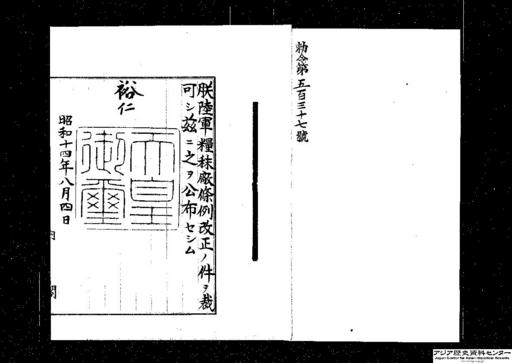 勅令第五百三十七號
朕陸軍糧秣廠條例改正ノ件ヲ裁
可シ茲ニ之ヲ公布セシム
裕仁
天皇
御璽
昭和十四年八月四日
内閣
アジア歴史資料センター
Japan Center for Asian Historical Records